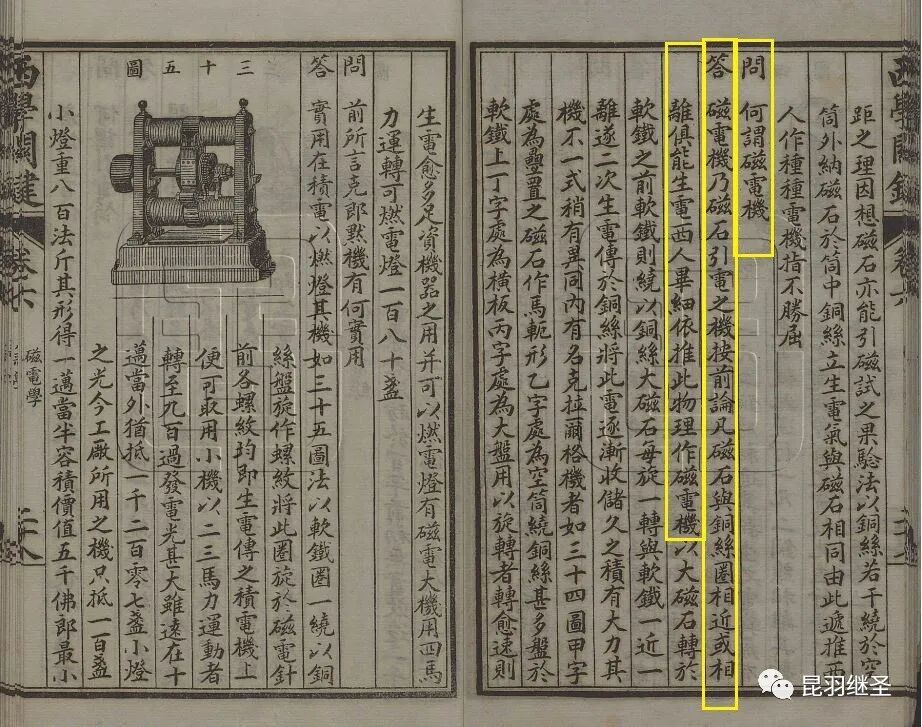 距之理因想磁石亦能引磁試之果驗法以銅絲若干繞於空
筒外納磁石於筒中銅絲立生電氣與磁石相同由此遞推西
人作種種電機指不勝屈
問 何謂磁電機
答 磁電機乃磁石引電之機按前論凡磁石與銅絲圈相近或相
離俱能生電西人畢細依推此物理作磁電機以大磁石轉於
軟鐵之前軟鐵則繞以銅絲大磁石每旋一轉與軟鐵一近一
離遂二次生電傳於銅絲將此電逐漸收儲久之積有大力其
機不一式稍有異同內有名克拉爾格機者如三十四圖甲字
處為疊置之磁石作馬軛形乙字處為空筒繞銅絲甚多盤於
軟鐵上丁字處為橫板丙字處為大盤用以旋轉者轉愈速則
西學關鍵
卷六
生電愈多足資機器之用并可以燃電燈有磁電大機用四馬
力運轉可燃電燈一百八十盞
問 前所言克郎默機有何實用
答 實用在積電以燃燈其機如三十五圖法以軟鐵圈一繞以銅
絲盤旋作螺紋將此圈旋於磁電針
前各螺紋均即生電傳之積電機上
便可取用小機以二三馬力運動者
轉至九百過發電光甚大雖遠在十
邁當外猶抵一千二百零七盞小燈
之光今工廠所用之機只抵一百盞
小燈重八百法斤其形得一邁當半容積價值五千佛郎最小
三十五圖
西學關鍵
卷六
磁電學
昆羽继圣